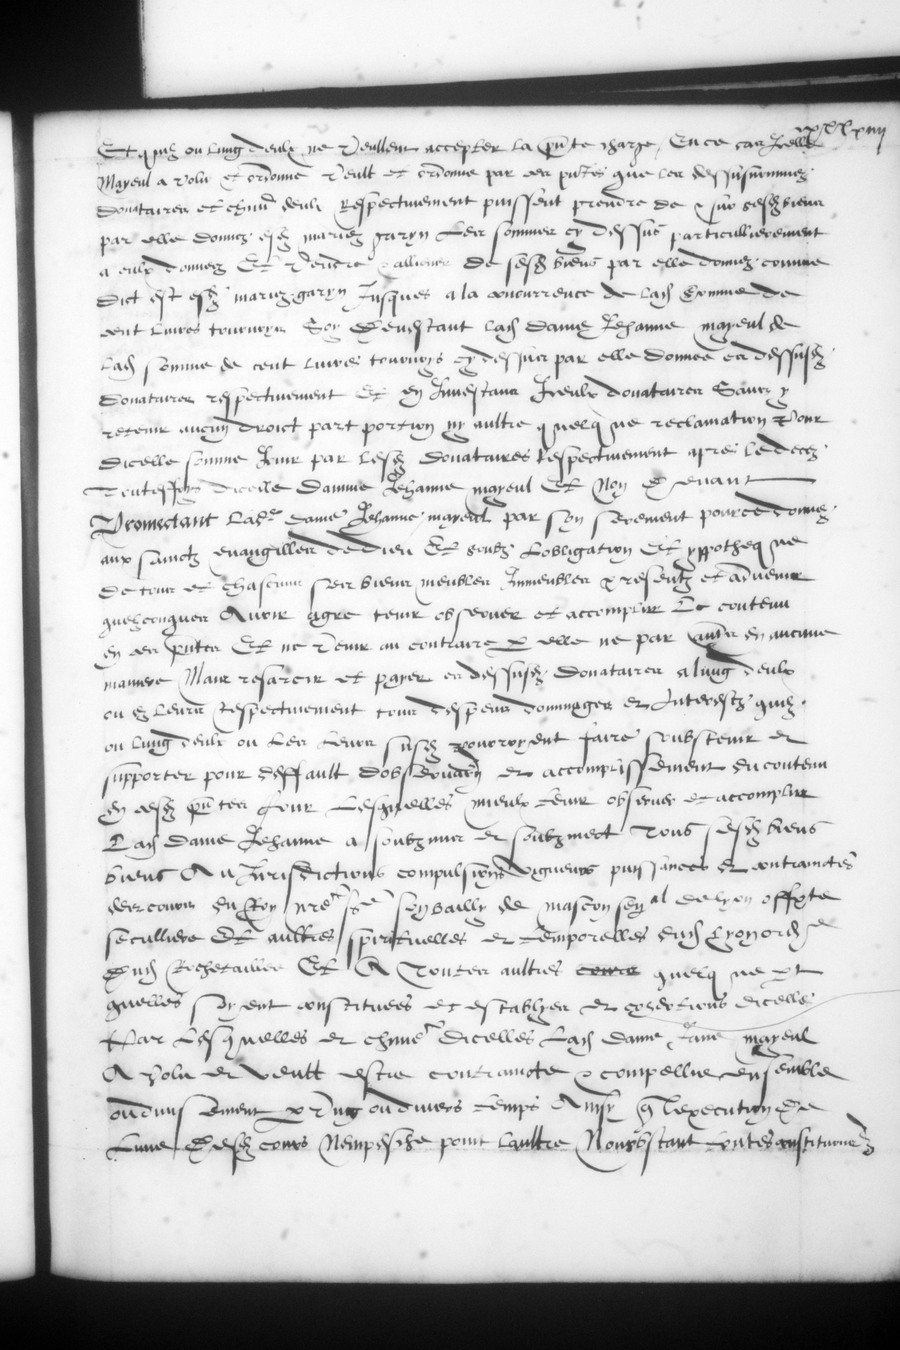 Et quilz ou lung deulx ne veullent accepter la pnte charge, En ce cas Icelle
Mayeul a volu Et ordonne veult et ordonne par ces pntes que les dessusnommez
donataires et chun deulx Respectivement puissent prendre de sur sesd biens
par elle donnez esd mariez garyn Les sommes cy dessus particullierement
a eulx donnees Et vendre alliener de sesd biens par elle donnez comme
dict est esd mariez garyn Jusques a la concurrence de lad Somme de
cent Livres tournoys Soy devestant lad dame Jehanne mayeul de
lad somme de cent Livres tournoys cy dessus par elle donnee es dessusd
donataires respectivement Et en Investant Iceulx donataires Sans y
retenir aucun droict part portion ny aultre quelque reclamation Pour
dicelle somme Jouir par lesd donataires Respectivement apres le deces
Touteffoys dicelle Damme Jehanne mayeul Et Non devant
Promectant Lade dame Jehanne mayeul par son serement pource donne
aux sainctz evangilles de Dieu Et soubz Lobligation Et ypotheque
de tous et chascuns ses biens meubles Immeubles presentz et advenir
quelconques Avoir agre tenir observer et accomplir Le contenu
en ces pntes Et ne venir au contraire p elle ne par aultre en aucune
maniere Mais resarcir et payer es dessusd Donataires a lung deulx
ou es Leurs Respectivement tous despens dommages et Interestz quilz
ou lung deulx ou Les Leurs susd pourroyent faire soubstenir et
supporter pour deffault dobservation et accomplissement du contenu
en cesd pntes Pour Lesquelles mieulx tenir observer et accomplir
Lad Dame Jehanne a soubzmis et soubzmect Tous sesd biens
biens Au Jurisdictions compulsions vigueurs puissances et contrainctes
des cours du Roy nre sire Soy bailly de mascon seneal de Lyon officte
seculliere Et aultres spirituelles et temporelles dud Lyon ordre
dud Rochetaillee Et A Toutes aultres quelque et
quelles soyent constituees et establyes et dicelles
Par Lesquelles et chune dicelles Lad dame Jane mayeul
A volu et veult estre contraincte & compellie ensemble
ou divisement p ung ou divers temps Ainsy q lexecution de
Lune desd cours Nempesche point Laultre Nonobstant toutes constitutions